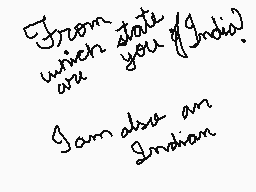 From which state of India?
are you
I am also an
Indian